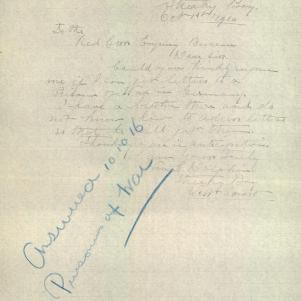 Wheatley Bay.
Oct 1st 1916
To the
Red Cross Enquiry Bureau
Dear Sir
Could you kindly inform
me if I can get letters to a
Prisoner of War in Germany.
I have a brother there and do
not know how to address letters
so that he will get them
Thanking you in anticipation
Yours truly
West
Answered 10.10.16
Prisoners of War